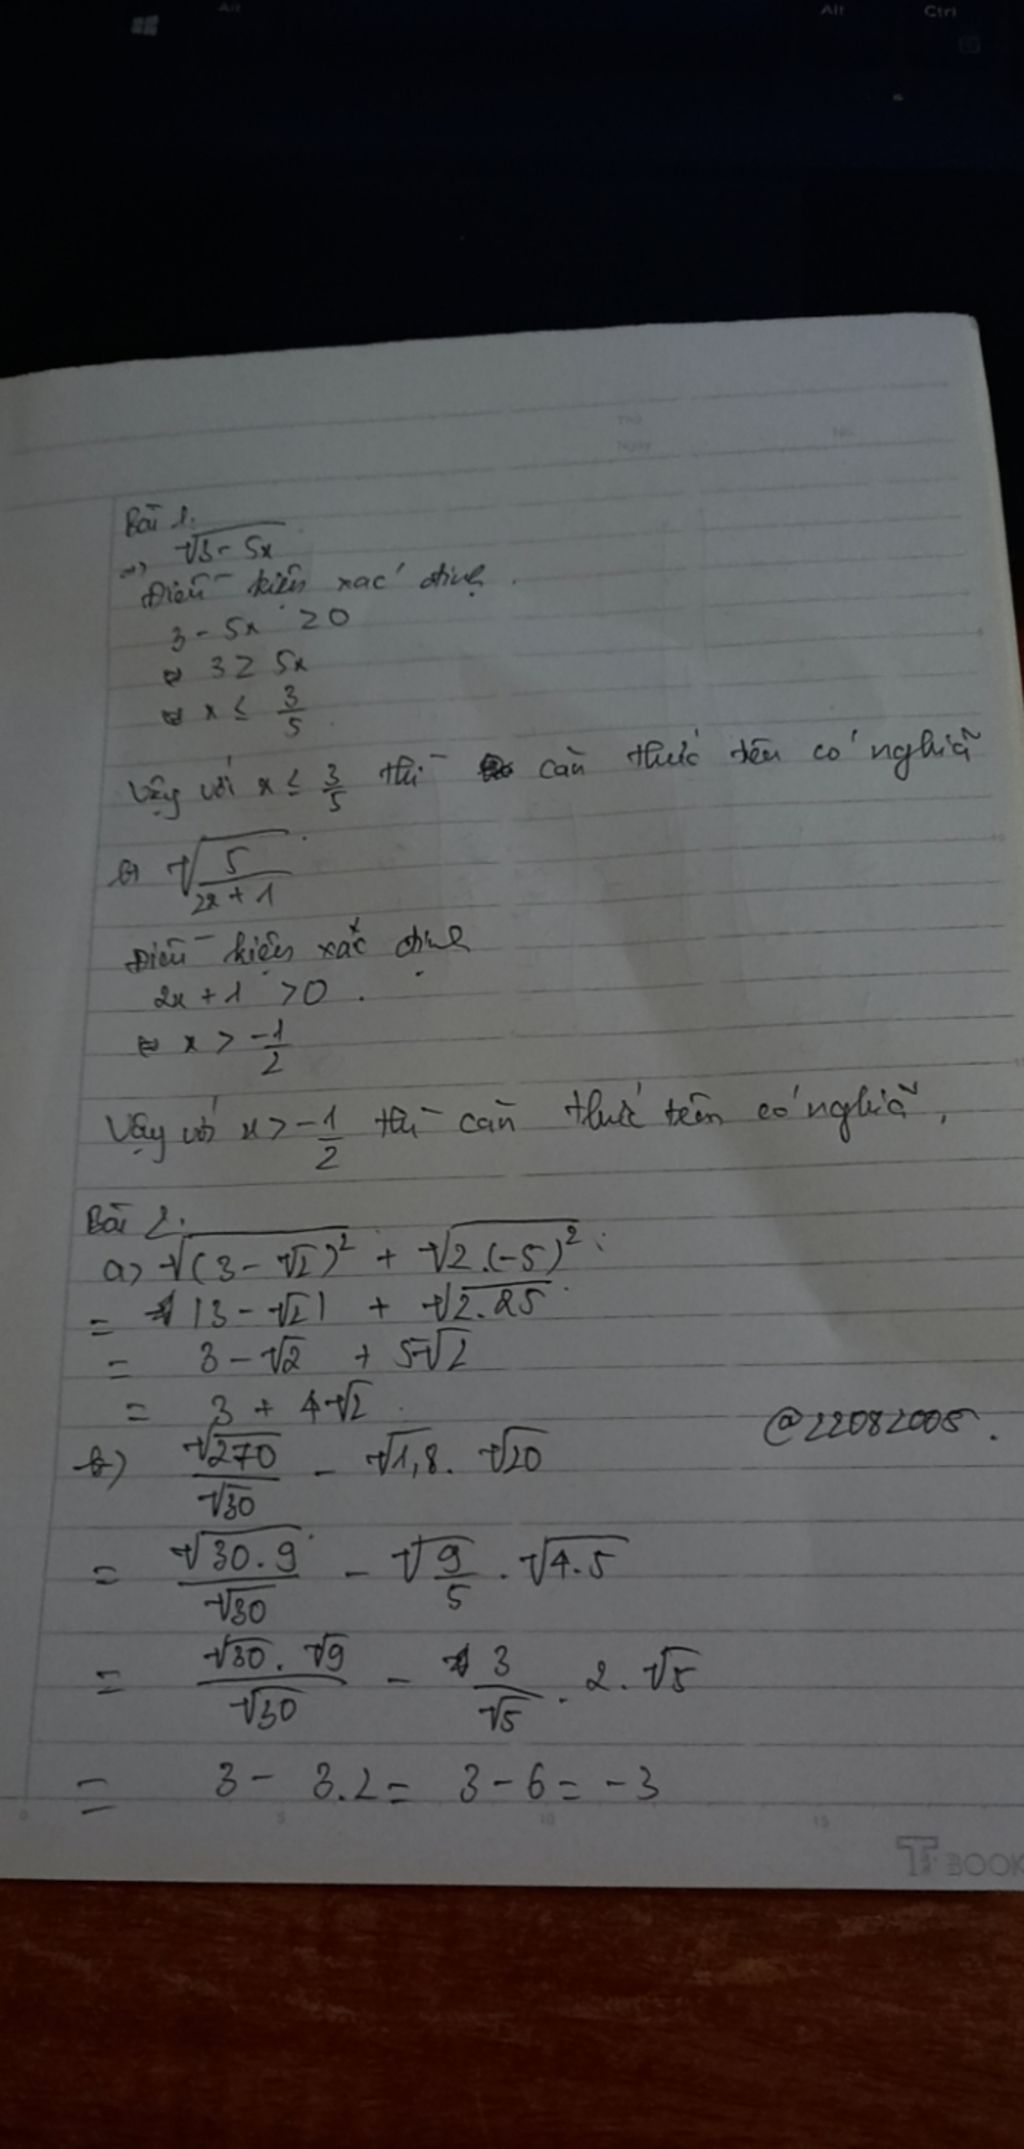 Alt
Alt
Ctrl
Thứ
Ngày
No.
Bài 1.
a) √(3 - 5x)
Điều kiện xác định
3 - 5x ≥ 0
⇔ 3 ≥ 5x
⇔ x ≤ 3/5
Vậy với x ≤ 3/5 thì căn thức trên có nghĩa
b) √(5/(2x + 1))
Điều kiện xác định
2x + 1 > 0.
⇔ x > -1/2
Vậy với x > -1/2 thì căn thức trên có nghĩa.
Bài 2.
a) √((3 - √2)²) + √(2.(-5)²)
= |3 - √2| + √(2.25)
= 3 - √2 + 5√2
= 3 + 4√2
@22082005.
b) √270/√30 - √1,8 . √20
= √(30.9)/√30 - √(9/5) . √(4.5)
= (√30 . √9)/√30 - 3/√5 . 2.√5
= 3 - 3.2 = 3 - 6 = -3
0 5 10 15
T BOOK